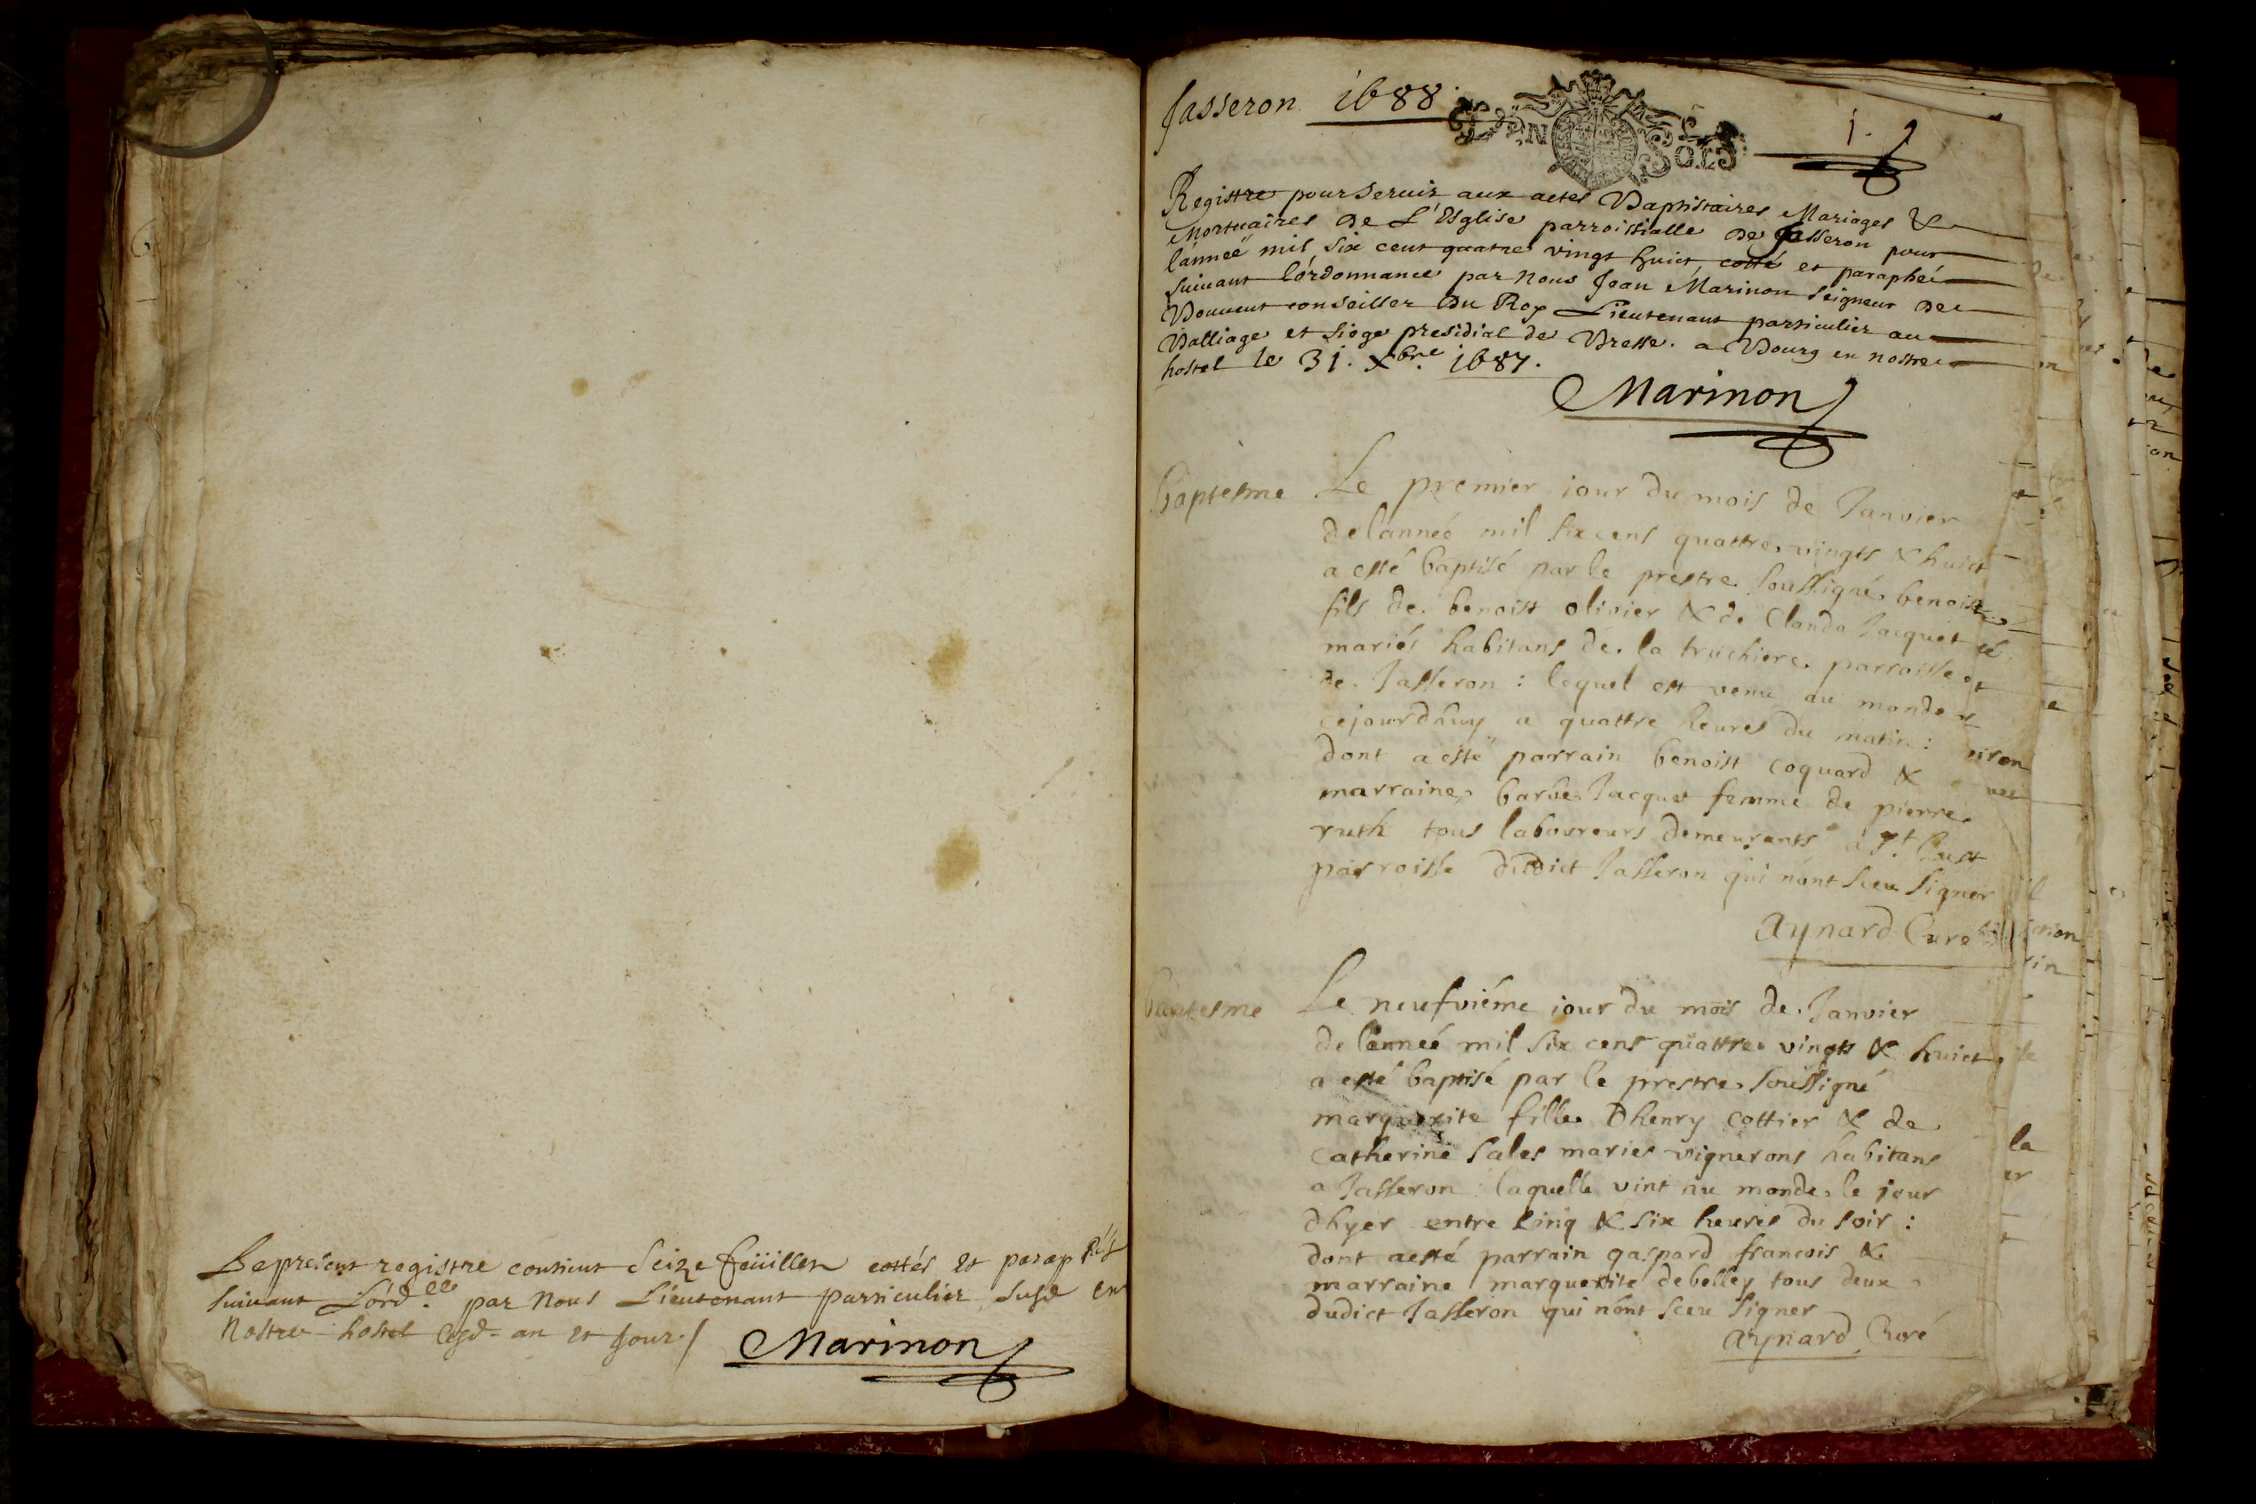 Le present registre contient Seize feüillets cottés et paraphés
suivant L'ord.ce par Nous Lieutenant particulier susd en
Nostre hostel lesd. an et jour./
Marinon
Jasseron 1688.
GEN
Sols
1.
Registre pour servir aux actes Baptistaires Mariages &
Mortuaires de L'Esglise parroissialle de Jasseron pour
l'année mil six cent quatre vingt huict cotté et paraphé
suivant l'ordonnance par nous Jean Marinon seigneur de
Bouvent conseiller du Roy Lieutenant particulier au
Balliage et siege presidial de Bresse. a Bourg en nostre
hostel le 31. Xbre. 1687.
Marinon
baptesme
Le premier jour du mois de Janvier
de lanneé mil six cens quattre vingts & huict
a esté baptisé par le prestre soussigné benoist
fils de benoist olivier & de Clauda Jacquet
mariés habitans de la truchiere parroisse
de Jasseron : lequel est venu au monde
cejourdhuy a quattre heures du matin :
dont a esté parrain benoist coquard &
marraine barbe Jacquet femme de pierre
ruth tous laboureurs demeurants a St Just
parroisse dudict Jasseron qui n'ont sceu signer
Aynard Curé
baptesme
Le neufviéme jour du mois de Janvier
de lanneé mil six cens quattre vingts & huict
a esté baptisé par le prestre soussigné
marguerite fille dhenry cottier & de
catherine sales mariés vignerons habitans
a Jasseron laquelle vint au monde le jour
dhyer entre cinq & six heures du soir :
dont a esté parrain gaspard francois &
marraine marguerite debelley tous deux
dudict Jasseron qui n'ont sceu signer
aynard Curé